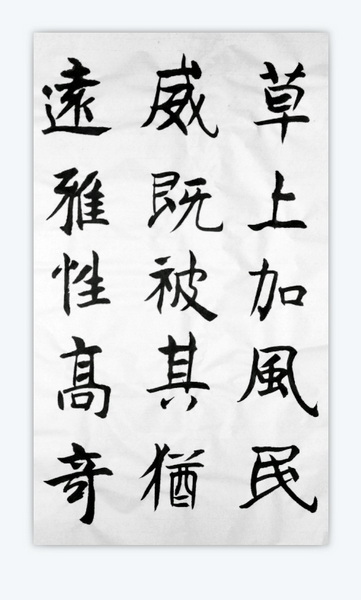 草上加風民
威既被其猶
遠雅性高奇